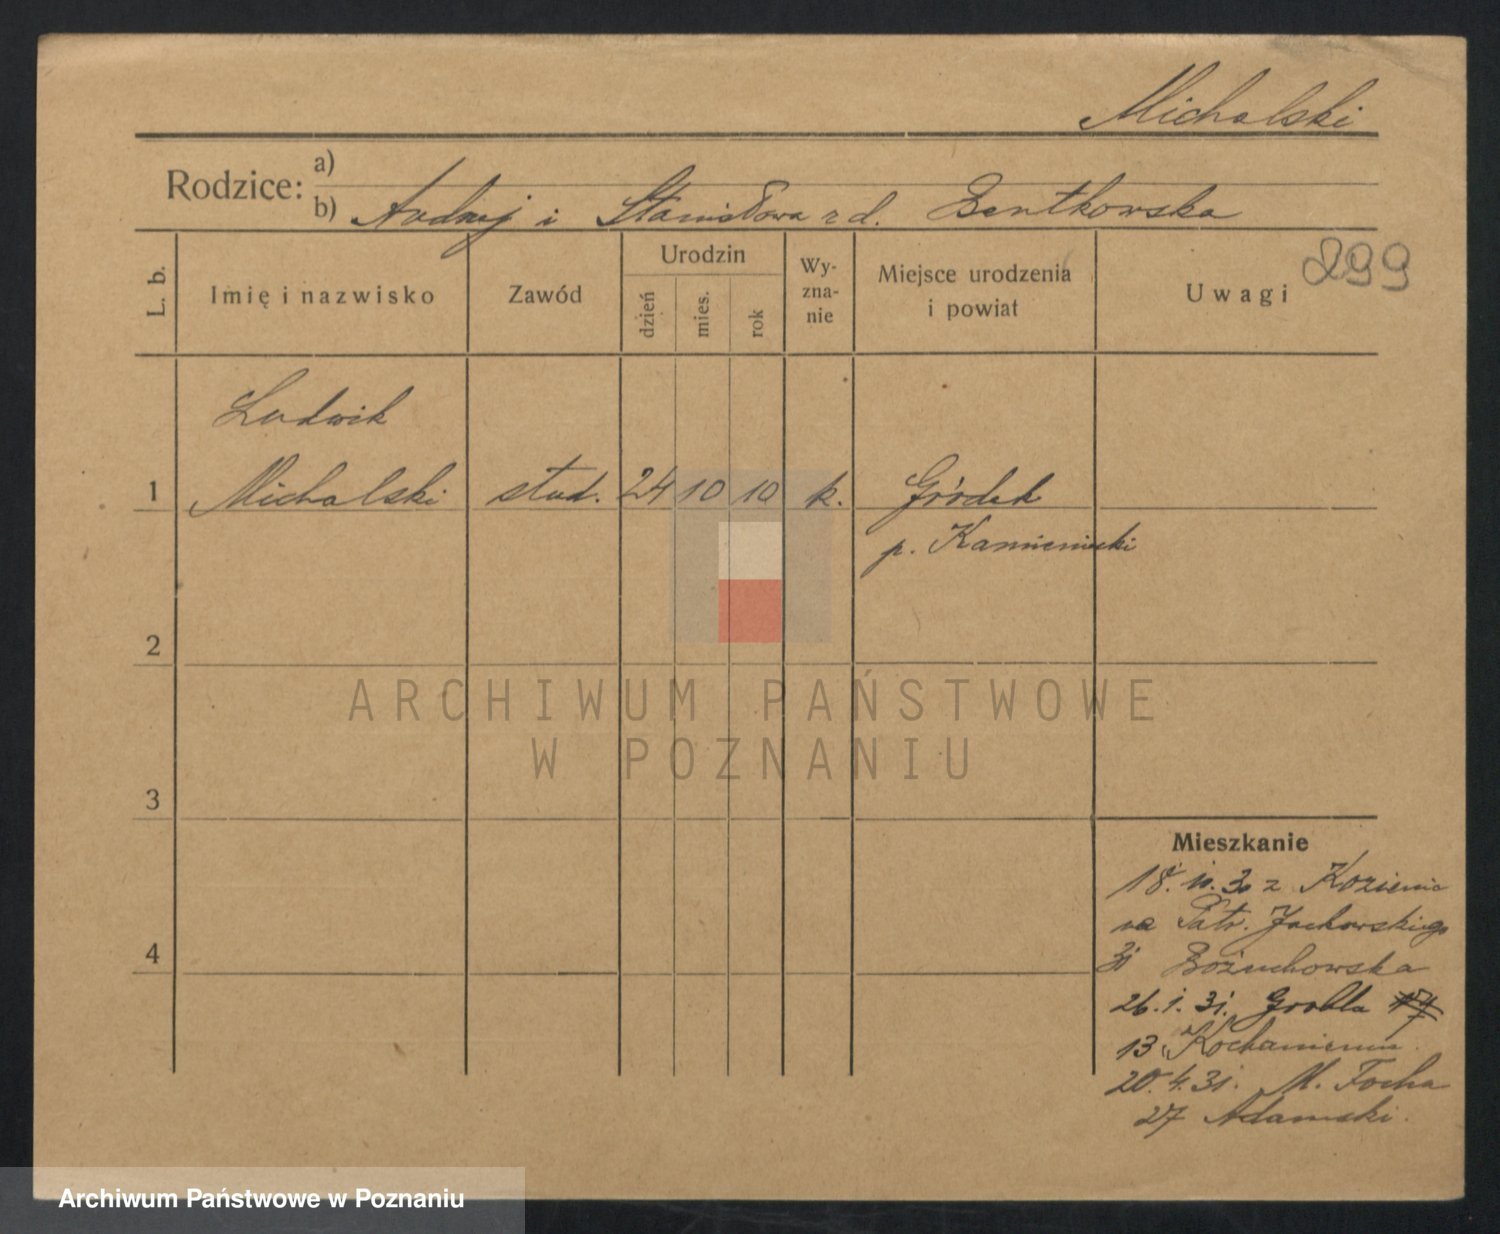 Michalski
Rodzice: a)
b) Andrzej i Stanisława z d. Bentkowska
L. b.
Imię i nazwisko
Zawód
Urodzin
dzień
mies.
rok
Wy-
zna-
nie
Miejsce urodzenia
i powiat
Uwagi
299
Ludwik
1 Michalski stud. 24 10 10 k. Gródek
p. Kamieniecki
2
ARCHIWUM PAŃSTWOWE
W POZNANIU
3
Mieszkanie
18. 10. 30 z Kozienic
na Patr. Jackowskiego
31 Bożuchowska
4
26. 1. 31. Grobla
13
20. 4. 31. M. Focha
27 Adamski.
Archiwum Państwowe w Poznaniu